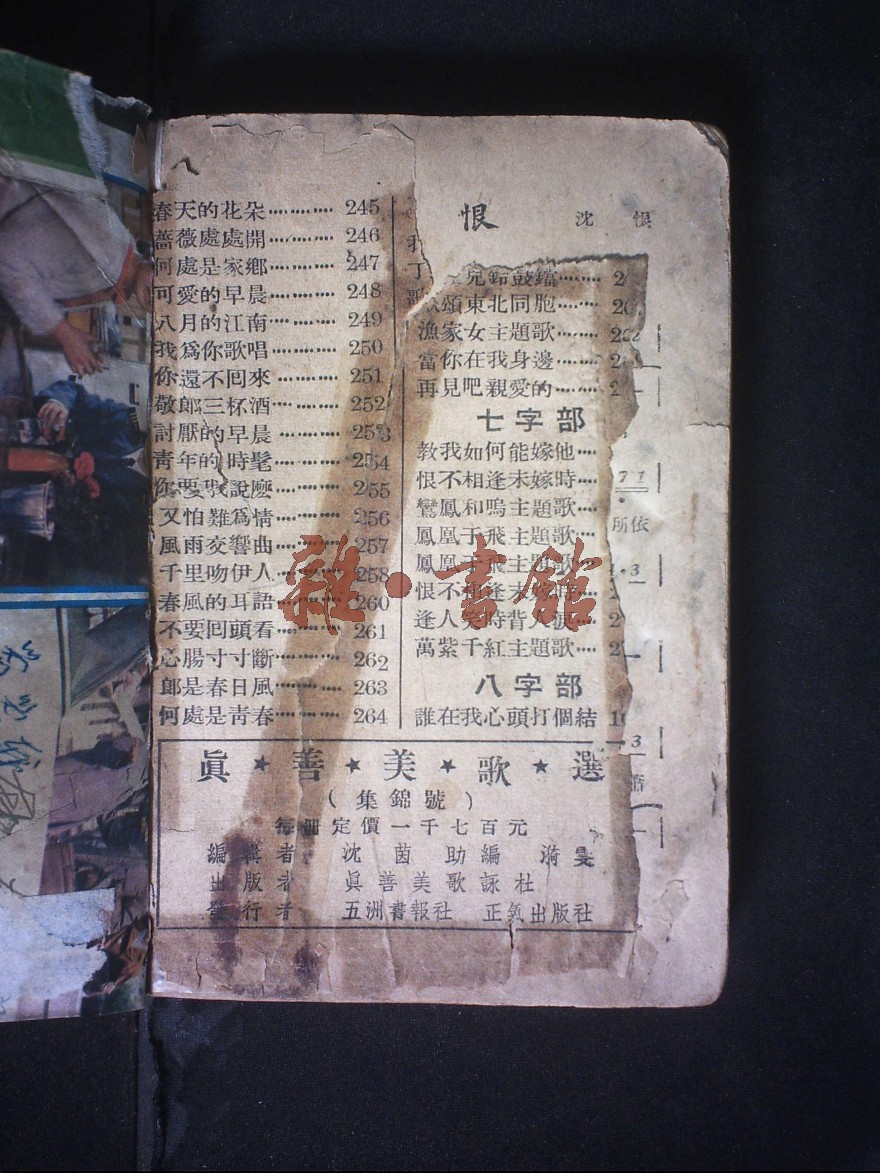 春天的花朵………… 245
薔薇處處開………… 246
何處是家鄉………… 247
可愛的早晨………… 248
八月的江南………… 249
我爲你歌唱………… 250
你還不回來………… 251
敬郎三杯酒………… 252
討厭的早晨………… 253
靑年的時髦………… 254
你要我說麼………… 255
又怕難爲情………… 256
風雨交響曲………… 257
千里吻伊人………… 258
春風的耳語………… 260
不要回頭看………… 261
心腸寸寸斷………… 262
郎是春日風………… 263
何處是靑春………… 264
恨 沈 恨
我
丁
歌
兒鈴鼓鐺………
頌東北同胞………
漁家女主題歌………
當你在我身邊………
再見吧親愛的………
七字部
教我如何能嫁他…
恨不相逢未嫁時…
鸞鳳和鳴主題歌…
鳳凰于飛主題歌…
鳳凰于飛主題歌…
恨不相逢未嫁時…
逢人笑時背人淚…
萬紫千紅主題歌…
八字部
誰在我心頭打個結
7 1
所依
1·3
3
眞★善★美★歌★選
(集錦號)
每冊定價一千七百元
編輯者 沈茵 助編 漪雯
出版者 眞善美歌詠社
發行者 五洲書報社 正氣出版社
雜·書館